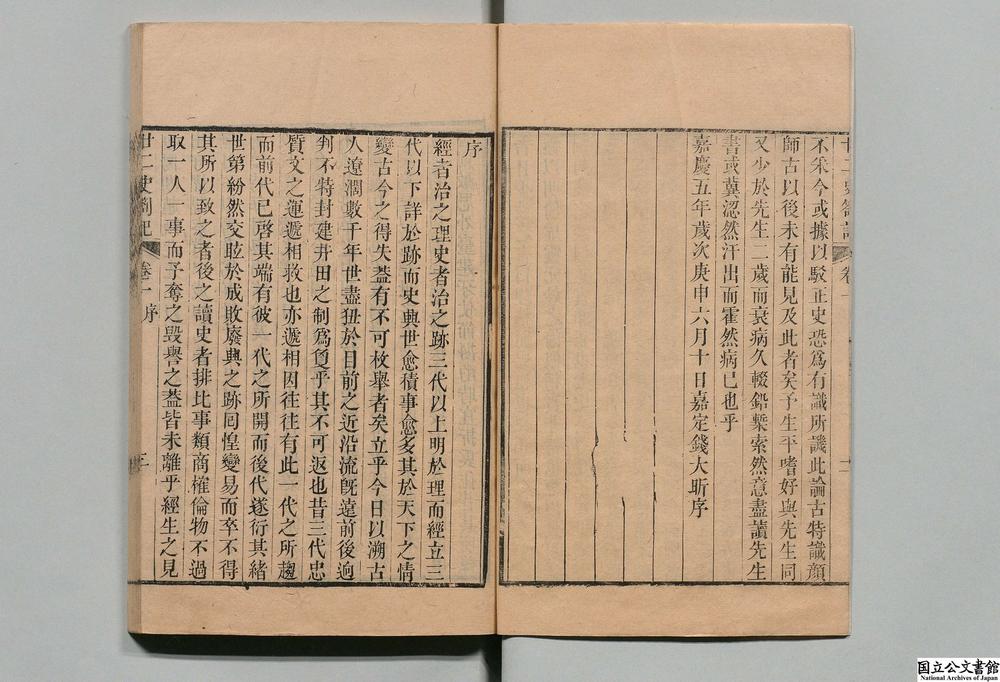 不采今或據以駁正史恐爲有識所譏此論古特識顔
師古以後未有能見及此者矣予生平嗜好與先生同
又少於先生二歲而衰病久輟鉛槧索然意盡讀先生
書或冀涊然汗出而霍然病已也乎
嘉慶五年歲次庚申六月十日嘉定錢大昕序
序
經者治之理史者治之跡三代以上明於理而經立三
代以下詳於跡而史興世愈積事愈多其於天下之情
變古今之得失蓋有不可枚舉者矣立乎今日以溯古
人遼濶數千年世盡狃於目前之近沿流旣遠前後逈
判不特封建井田之制爲夐乎其不可返也昔三代忠
質文之運遞相救也亦遞相因往往有此一代之所趨
而前代已啓其端有彼一代之所開而後代遂衍其緒
世第紛然交眩於成敗廢興之跡囘惶變易而卒不得
其所以致之者後之讀史者排比事類商榷倫物不過
取一人一事而予奪之毀譽之蓋皆未離乎經生之見
廿二史劄記
卷一
序
国立公文書館
National Archives of Japan